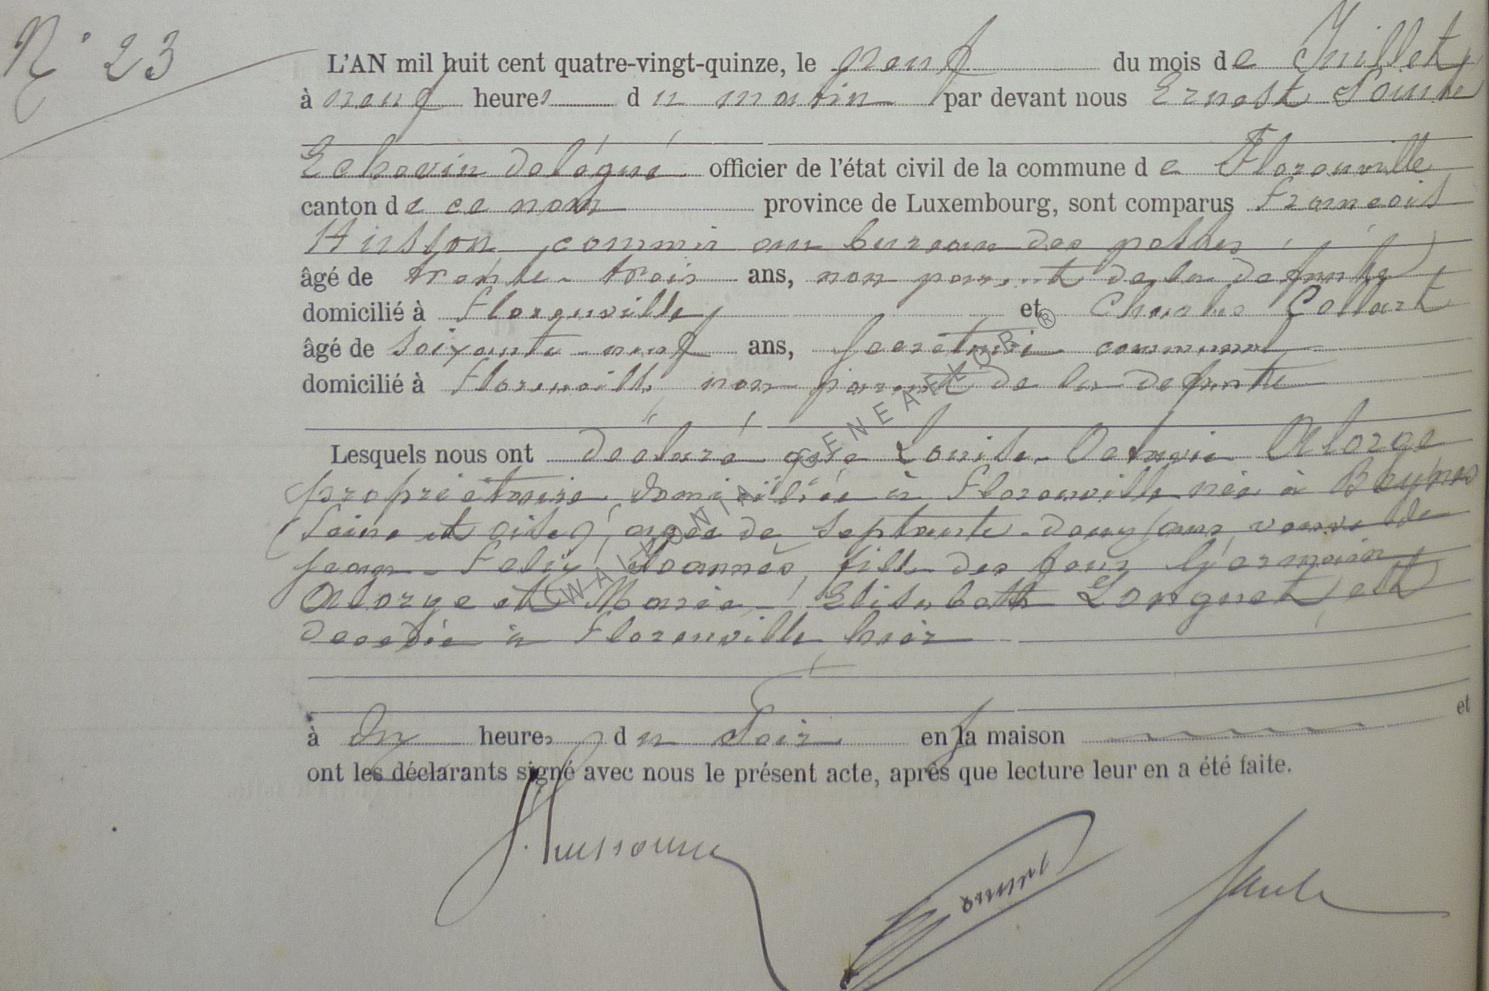 N° 23
L'AN mil huit cent quatre-vingt-quinze, le neuf du mois de Juillet
à neuf heures du matin par devant nous Ernest
Echevin délégué officier de l'état civil de la commune de Florenville
canton de ce nom province de Luxembourg, sont comparus François
commis au bureau des postes
âgé de trente-trois ans, non parent de la défunte
domicilié à Florenville et Charles Collart
âgé de soixante-neuf ans, secrétaire communal
domicilié à Florenville non parent de la défunte
Lesquels nous ont déclaré que Louise-Octavie Alorge
propriétaire domiciliée à Florenville née à Beynes
(Seine et oise), agée de septante-deux ans, veuve de
Jean-Felix fille des feux Germain
Alorge et Marie-Elisabeth Longuet, est
decedée à Florenville hier
à dix heures du soir en la maison et
ont les déclarants signé avec nous le présent acte, après que lecture leur en a été faite.
WALLONIA GENEAFLOR ®